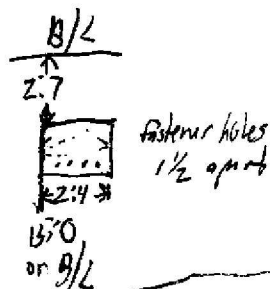 B/L
2.7
fastener holes
1 1/2 apart
2.4
15.0
on B/L